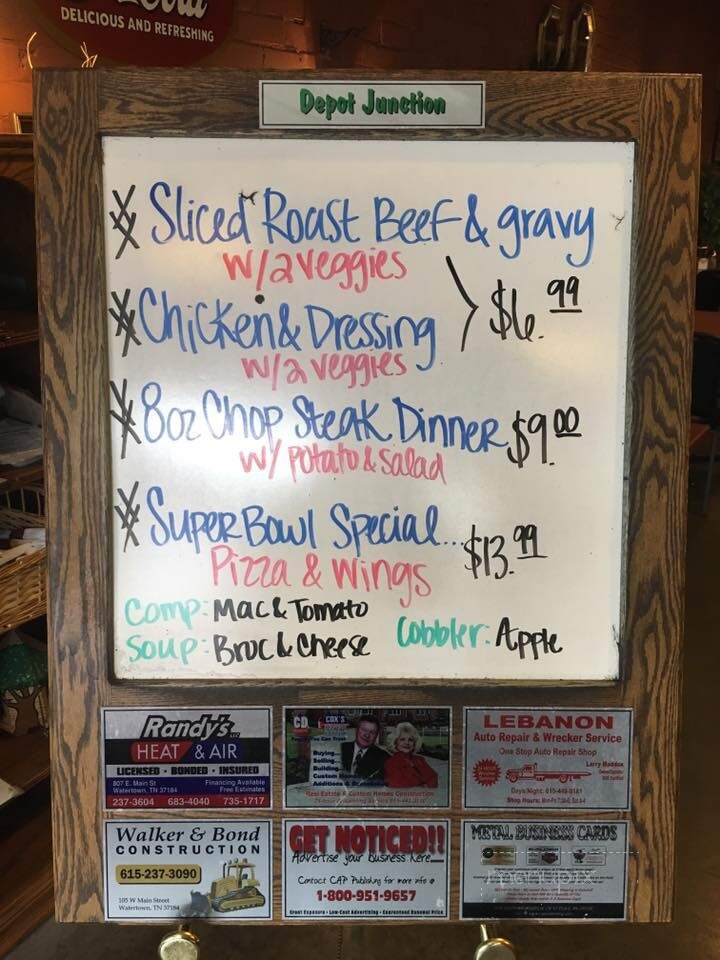 DELICIOUS AND REFRESHING
Depot Junction
Sliced Roast Beef & gravy
w/2 veggies
Chicken & Dressing
w/2 veggies
$6.99
8oz Chop Steak Dinner $9.00
w/ potato & salad
Super Bowl Special... $13.99
Pizza & Wings
Comp: Mac & Tomato
Soup: Broc & Cheese
Cobbler: Apple
Randy's LLC
HEAT & AIR
LICENSED · BONDED · INSURED
807 E. Main St
Watertown, TN 37184
Financing Available
Free Estimates
237-3604 683-4040 735-1717
CD COX'S
You Can Trust
Buying
Selling
Building
Custom Homes
Additions &
Real Estate & Custom Homes Construction
LEBANON
Auto Repair & Wrecker Service
One Stop Auto Repair Shop
Larry Maddox
Days/Night: 615-449-8181
Shop Hours:
Walker & Bond
CONSTRUCTION
615-237-3090
105 W Main Street
Watertown, TN 37184
GET NOTICED!!
Advertise your business here...
Contact CAP Publishing for more info @
1-800-951-9657
Great Exposure · Low-Cost Advertising · Guaranteed Renewal Price
METAL BUSINESS CARDS